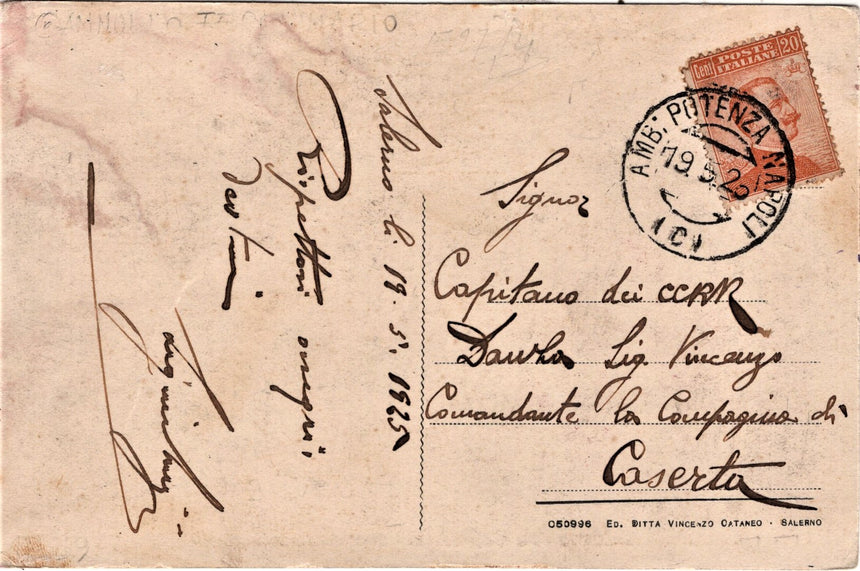 Salerno li 19.5.1925
Rispettosi ossequi,
POSTE
ITALIANE
Cent 20
AMB. POTENZA NAPOLI
19.5.25
(C)
Signor
Capitano dei CCRR
Sig. Vincenzo
Comandante la Compagnia di
Caserta
050996 ED. DITTA VINCENZO CATANEO - SALERNO